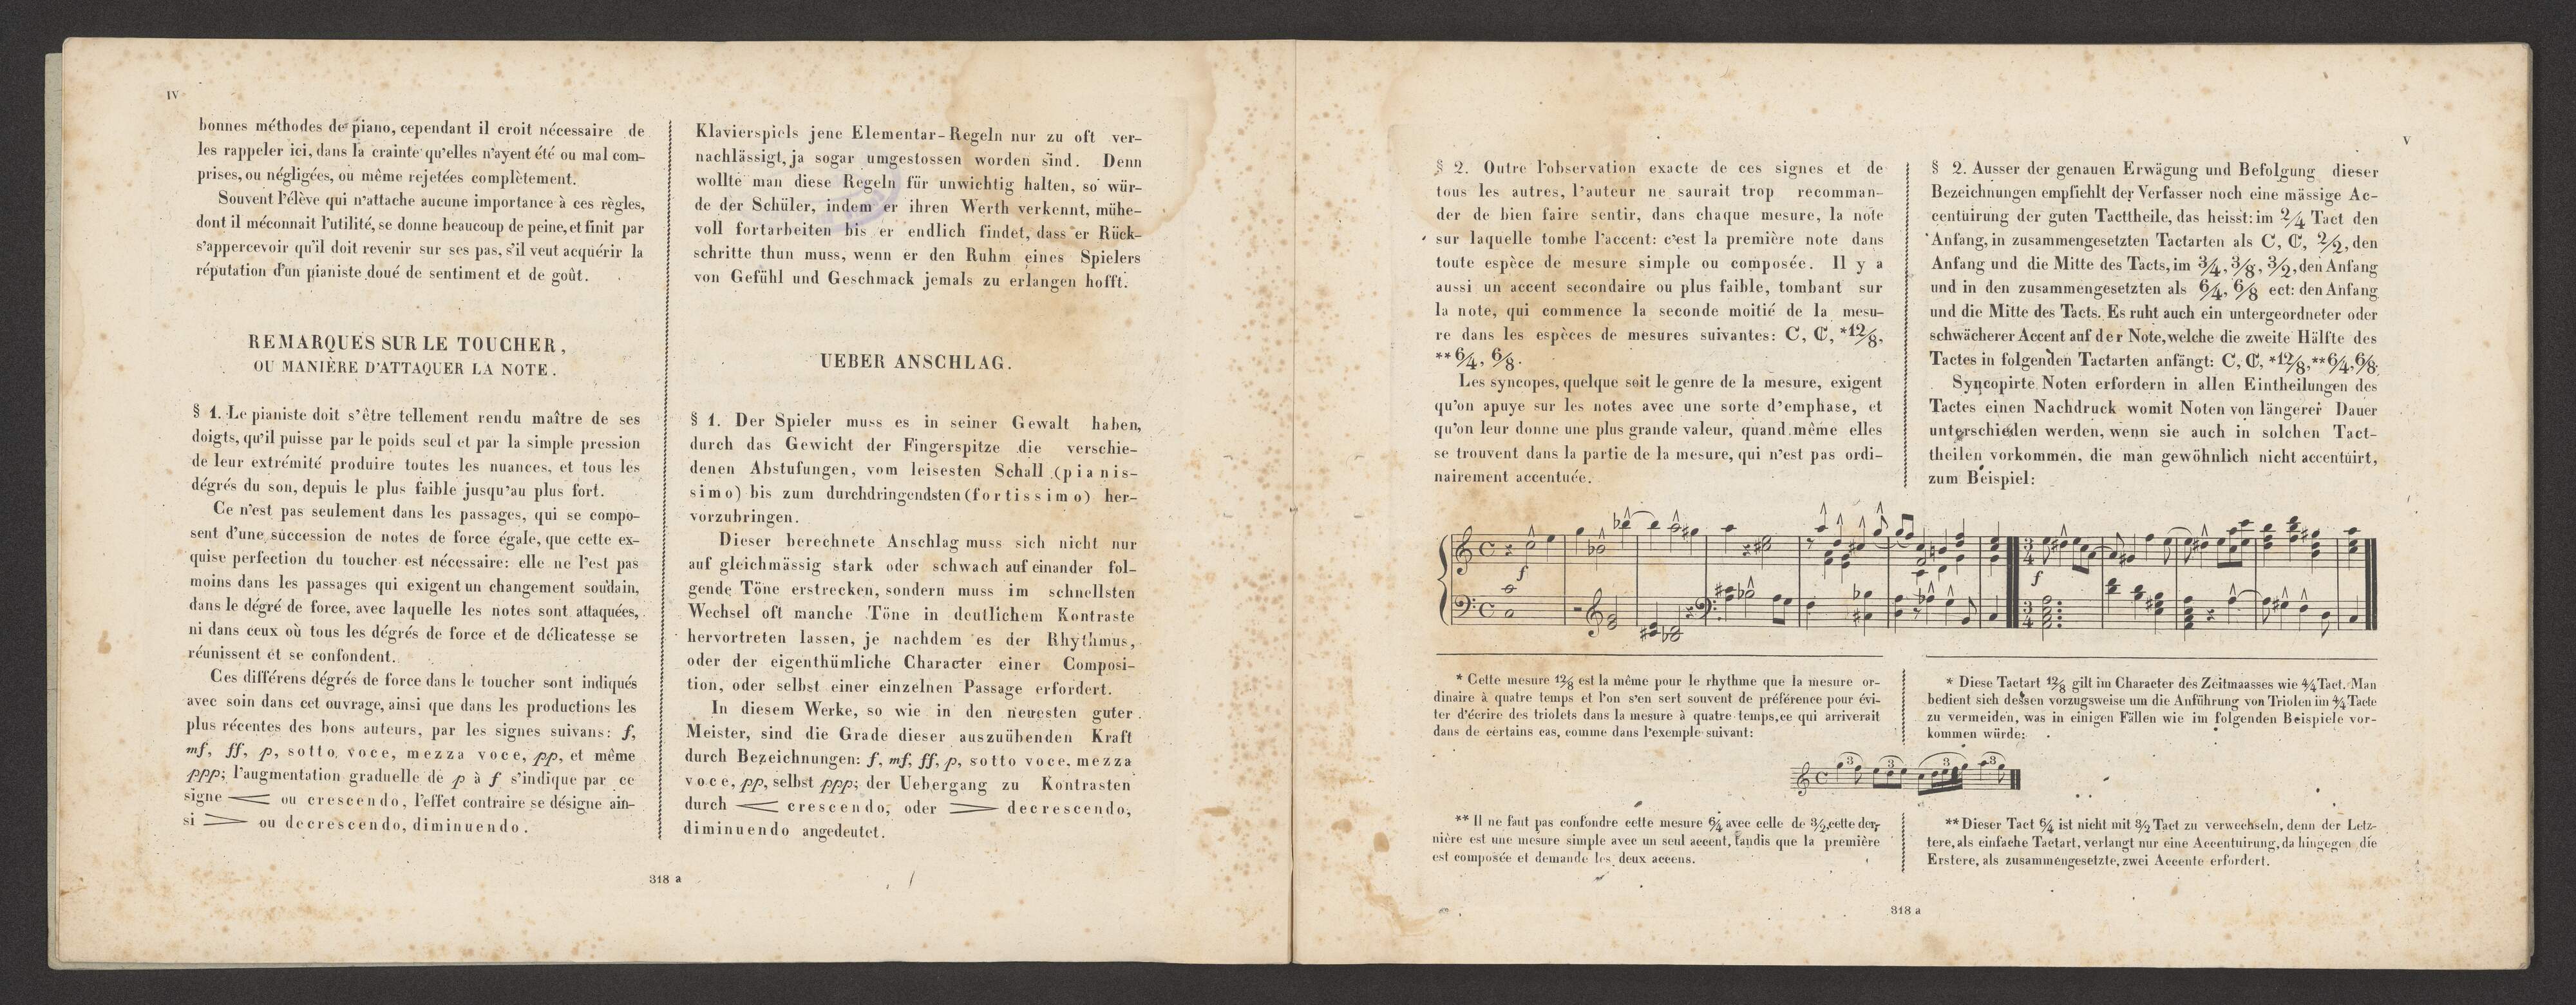 IV
bonnes méthodes de piano, cependant il croit nécessaire de
les rappeler ici, dans la crainte qu'elles n'ayent été ou mal com-
prises, ou négligées, ou même rejetées complètement.
Souvent l'élève qui n'attache aucune importance à ces règles,
dont il méconnait l'utilité, se donne beaucoup de peine, et finit par
s'appercevoir qu'il doit revenir sur ses pas, s'il veut acquérir la
réputation d'un pianiste doué de sentiment et de goût.
REMARQUES SUR LE TOUCHER,
OU MANIÈRE D'ATTAQUER LA NOTE.
§ 1. Le pianiste doit s'être tellement rendu maître de ses
doigts, qu'il puisse par le poids seul et par la simple pression
de leur extrémité produire toutes les nuances, et tous les
dégrés du son, depuis le plus faible jusqu'au plus fort.
Ce n'est pas seulement dans les passages, qui se compo-
sent d'une succession de notes de force égale, que cette ex-
quise perfection du toucher est nécessaire: elle ne l'est pas
moins dans les passages qui exigent un changement soudain,
dans le dégré de force, avec laquelle les notes sont attaquées,
ni dans ceux où tous les dégrés de force et de délicatesse se
réunissent et se confondent.
Ces différens dégrés de force dans le toucher sont indiqués
avec soin dans cet ouvrage, ainsi que dans les productions les
plus récentes des bons auteurs, par les signes suivans: f,
mf, ff, p, sotto voce, mezza voce, pp, et même
ppp; l'augmentation graduelle de p à f s'indique par ce
signe < ou crescendo, l'effet contraire se désigne ain-
si > ou decrescendo, diminuendo.
Klavierspiels jene Elementar-Regeln nur zu oft ver-
nachlässigt, ja sogar umgestossen worden sind. Denn
wollte man diese Regeln für unwichtig halten, so wür-
de der Schüler, indem er ihren Werth verkennt, mühe-
voll fortarbeiten bis er endlich findet, dass er Rück-
schritte thun muss, wenn er den Ruhm eines Spielers
von Gefühl und Geschmack jemals zu erlangen hofft.
UEBER ANSCHLAG.
§ 1. Der Spieler muss es in seiner Gewalt haben,
durch das Gewicht der Fingerspitze die verschie-
denen Abstufungen, vom leisesten Schall (pianis-
simo) bis zum durchdringendsten (fortissimo) her-
vorzubringen.
Dieser berechnete Anschlag muss sich nicht nur
auf gleichmässig stark oder schwach auf einander fol-
gende Töne erstrecken, sondern muss im schnellsten
Wechsel oft manche Töne in deutlichem Kontraste
hervortreten lassen, je nachdem es der Rhythmus,
oder der eigenthümliche Character einer Composi-
tion, oder selbst einer einzelnen Passage erfordert.
In diesem Werke, so wie in den neuesten guter
Meister, sind die Grade dieser auszuübenden Kraft
durch Bezeichnungen: f, mf, ff, p, sotto voce, mezza
voce, pp, selbst ppp; der Uebergang zu Kontrasten
durch < crescendo, oder > decrescendo,
diminuendo angedeutet.
318 a
V
§ 2. Outre l'observation exacte de ces signes et de
tous les autres, l'auteur ne saurait trop recomman-
der de bien faire sentir, dans chaque mesure, la note
sur laquelle tombe l'accent: c'est la première note dans
toute espèce de mesure simple ou composée. Il y a
aussi un accent secondaire ou plus faible, tombant sur
la note, qui commence la seconde moitié de la mesu-
re dans les espèces de mesures suivantes: C, ₵, *12/8,
**6/4, 6/8.
Les syncopes, quelque soit le genre de la mesure, exigent
qu'on apuye sur les notes avec une sorte d'emphase, et
qu'on leur donne une plus grande valeur, quand même elles
se trouvent dans la partie de la mesure, qui n'est pas ordi-
nairement accentuée.
§ 2. Ausser der genauen Erwägung und Befolgung dieser
Bezeichnungen empfiehlt der Verfasser noch eine mässige Ac-
centuirung der guten Tacttheile, das heisst: im 2/4 Tact den
Anfang, in zusammengesetzten Tactarten als C, ₵, 2/2, den
Anfang und die Mitte des Tacts, im 3/4, 3/8, 3/2, den Anfang
und in den zusammengesetzten als 6/4, 6/8 ect: den Anfang
und die Mitte des Tacts. Es ruht auch ein untergeordneter oder
schwächerer Accent auf der Note, welche die zweite Hälfte des
Tactes in folgenden Tactarten anfängt: C, ₵, *12/8, **6/4, 6/8.
Syncopirte Noten erfordern in allen Eintheilungen des
Tactes einen Nachdruck womit Noten von längerer Dauer
unterschieden werden, wenn sie auch in solchen Tact-
theilen vorkommen, die man gewöhnlich nicht accentuirt,
zum Beispiel:
f
f
* Cette mesure 12/8 est la même pour le rhythme que la mesure or-
dinaire à quatre temps et l'on s'en sert souvent de préférence pour évi-
ter d'écrire des triolets dans la mesure à quatre temps, ce qui arriverait
dans de certains cas, comme dans l'exemple suivant:
* Diese Tactart 12/8 gilt im Character des Zeitmaasses wie 4/4 Tact. Man
bedient sich dessen vorzugsweise um die Anführung von Triolen im 4/4 Tacte
zu vermeiden, was in einigen Fällen wie im folgenden Beispiele vor-
kommen würde:
3 3 3 3
** Il ne faut pas confondre cette mesure 6/4 avec celle de 3/2, cette der-
nière est une mesure simple avec un seul accent, tandis que la première
est composée et demande les deux accens.
** Dieser Tact 6/4 ist nicht mit 3/2 Tact zu verwechseln, denn der Letz-
tere, als einfache Tactart, verlangt nur eine Accentuirung, da hingegen die
Erstere, als zusammengesetzte, zwei Accente erfordert.
318 a